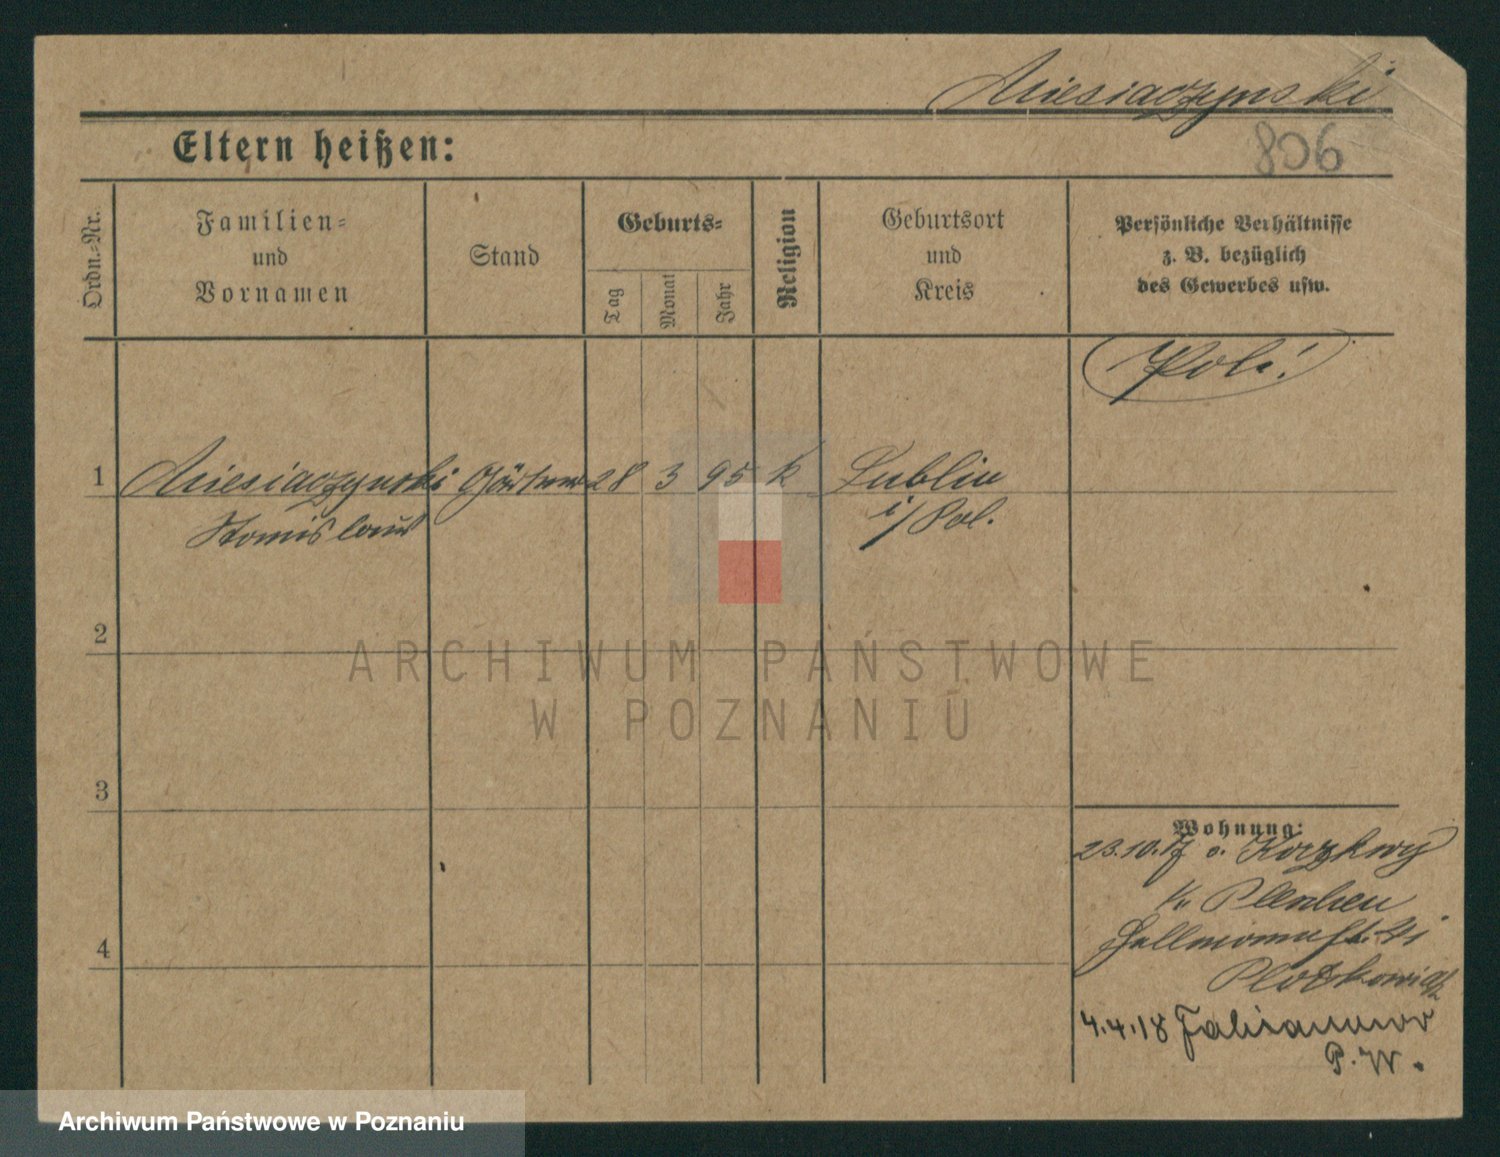 Miesiaczynski
806
Eltern heißen:
Ordn.-Nr.
Familien-
und
Vornamen
Stand
Geburts-
Tag
Monat
Jahr
Religion
Geburtsort
und
Kreis
Persönliche Verhältnisse
z. B. bezüglich
des Gewerbes usw.
1 Miesiaczynski Gärtner 28 3 95 k Lublin
Stanislaus i/Pol.
2
ARCHIWUM PAŃSTWOWE
W POZNANIU
3
Wohnung:
23.10.17
Pleschen
4
4.4.18 Fabianowo
P. W.
Archiwum Państwowe w Poznaniu